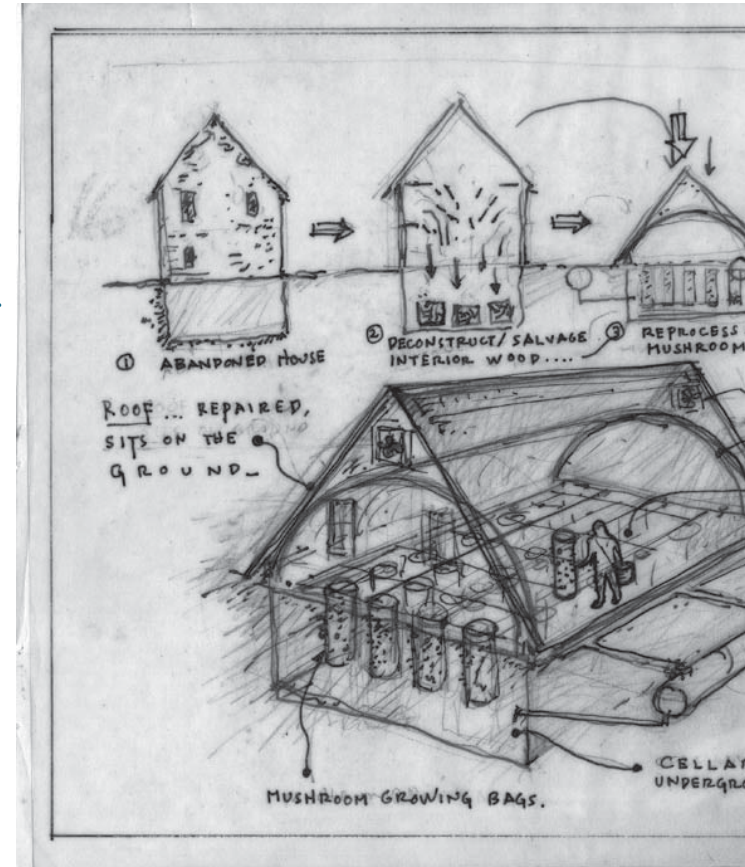 ① ABANDONED HOUSE
② DECONSTRUCT/SALVAGE
INTERIOR WOOD....
③ REPROCESS
MUSHROOM
ROOF ... REPAIRED,
SITS ON THE
GROUND_
MUSHROOM GROWING BAGS.
CELLA
UNDERGRO